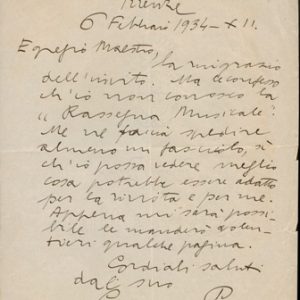 Firenze
6 Febbraio 1934-XII.
Egregio Maestro,
la ringrazio
dell'invito. Ma le confesso
ch'io non conosco la
"Rassegna Musicale".
Me ne faccia spedire
almeno un fascicolo, sì
ch'io possa vedere meglio
cosa potrebbe essere adatto
per la rivista e per me.
Appena mi sarà possi-
bile le manderò volen-
tieri qualche pagina.
Cordiali saluti
dal suo